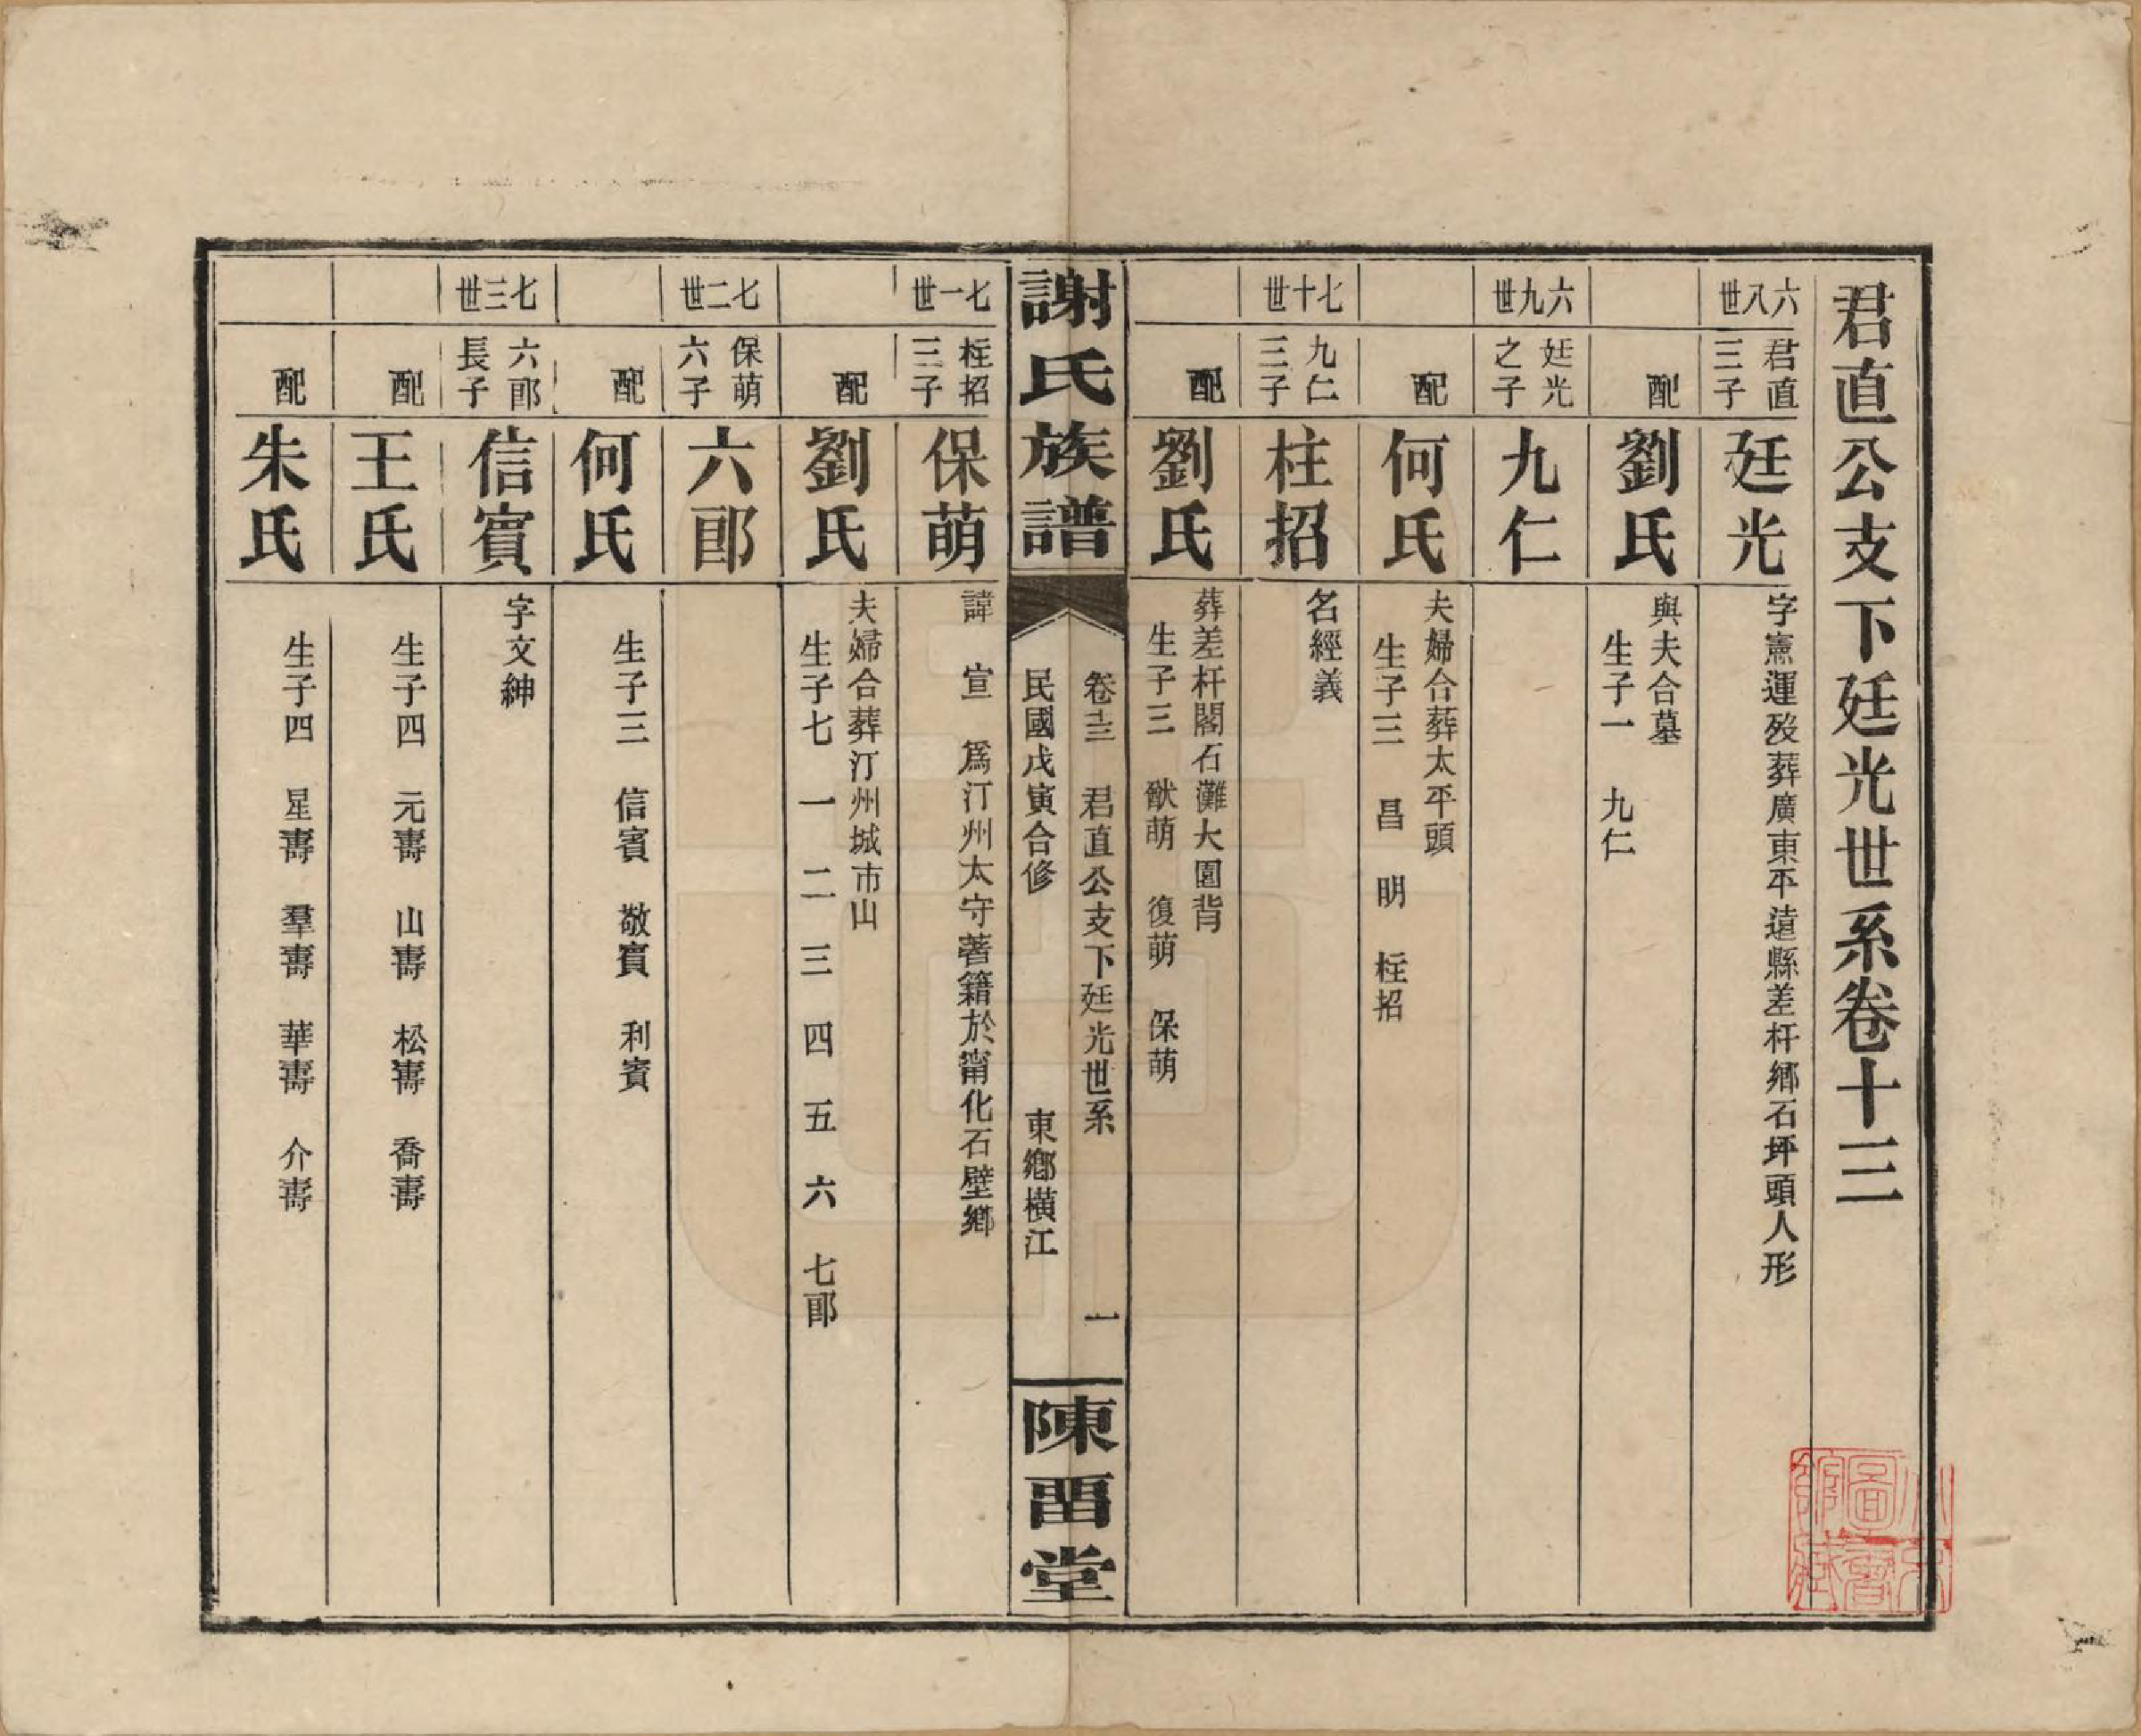 君直公支下廷光世系卷十三
六八世
君直三子
廷光
字憲運歿葬廣東平遠縣差杆鄉石坪頭人形
配
劉氏
與夫合墓
生子一　九仁
六九世
廷光之子
九仁
配
何氏
夫婦合葬太平頭
生子三　昌　明　柱招
七十世
九仁三子
柱招
名經義
配
劉氏
葬差杆閣石灘大園背
生子三　猷萌　復萌　保萌
謝氏族譜
卷十三　君直公支下廷光世系　一
民國戊寅合修　東鄉橫江
陳畱堂
七一世
柱招三子
保萌
諱　宣　爲汀州太守著籍於甯化石壁鄉
配
劉氏
夫婦合葬汀州城市山
生子七　一　二　三　四　五　六　七郎
七二世
保萌六子
六郎
配
何氏
生子三　信賓　敬賓　利賓
七三世
六郎長子
信賓
字文紳
配
王氏
生子四　元壽　山壽　松壽　喬壽
配
朱氏
生子四　星壽　羣壽　華壽　介壽